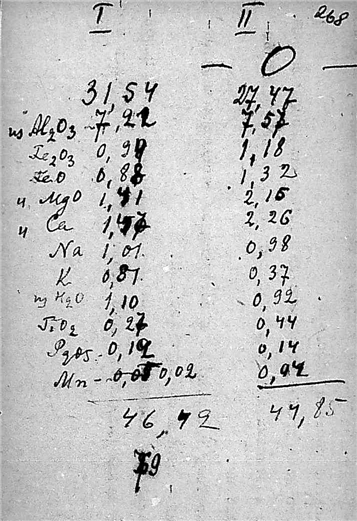 I II 268
— O —
31,54 27,47
из Al2O3 - 7,22 7,57
Fe2O3 0,99 1,18
FeO 0,88 1,32
и MgO 1,41 2,15
и Ca 2,26
Na 1,01 0,98
K 0,81 0,37
H2O 1,10 0,92
TiO2 0,27 0,44
P2O5 - 0,12 0,14
Mn - 0,02
46,42 44,85